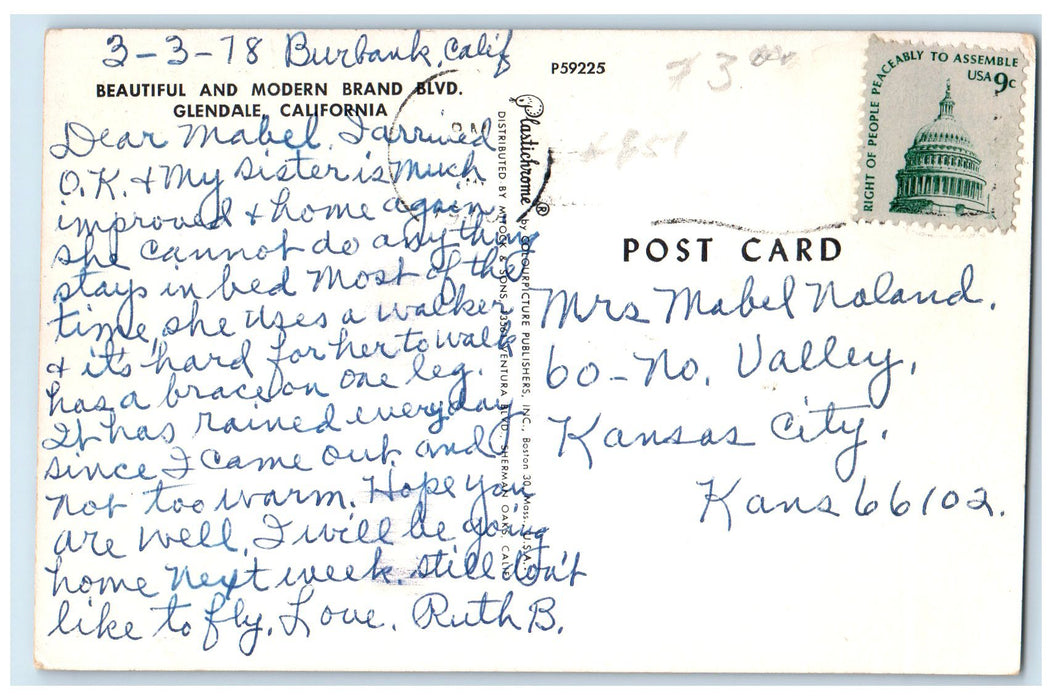 3-3-78 Burbank, Calif
BEAUTIFUL AND MODERN BRAND BLVD.
GLENDALE, CALIFORNIA
Dear Mabel, I arrived
O.K. + My sister is Much
improved + home again
she cannot do anything
stays in bed Most of the
time, she uses a walker
& it's hard for her to walk
has a brace on one leg.
It has rained everyday
since I came out and
not too warm. Hope you
are well. I will be going
home Next week. still don't
like to fly. Love. Ruth B.
P59225
Plastichrome® by COLOURPICTURE PUBLISHERS, INC., Boston 30, Mass., U.S.A.
DISTRIBUTED BY & SONS, VENTURA BLVD., SHERMAN OAKS, CALIF.
$3.00
RIGHT OF PEOPLE PEACEABLY TO ASSEMBLE
USA 9c
POST CARD
Mrs Mabel Noland.
60-No. Valley,
Kansas City.
Kans 66102.